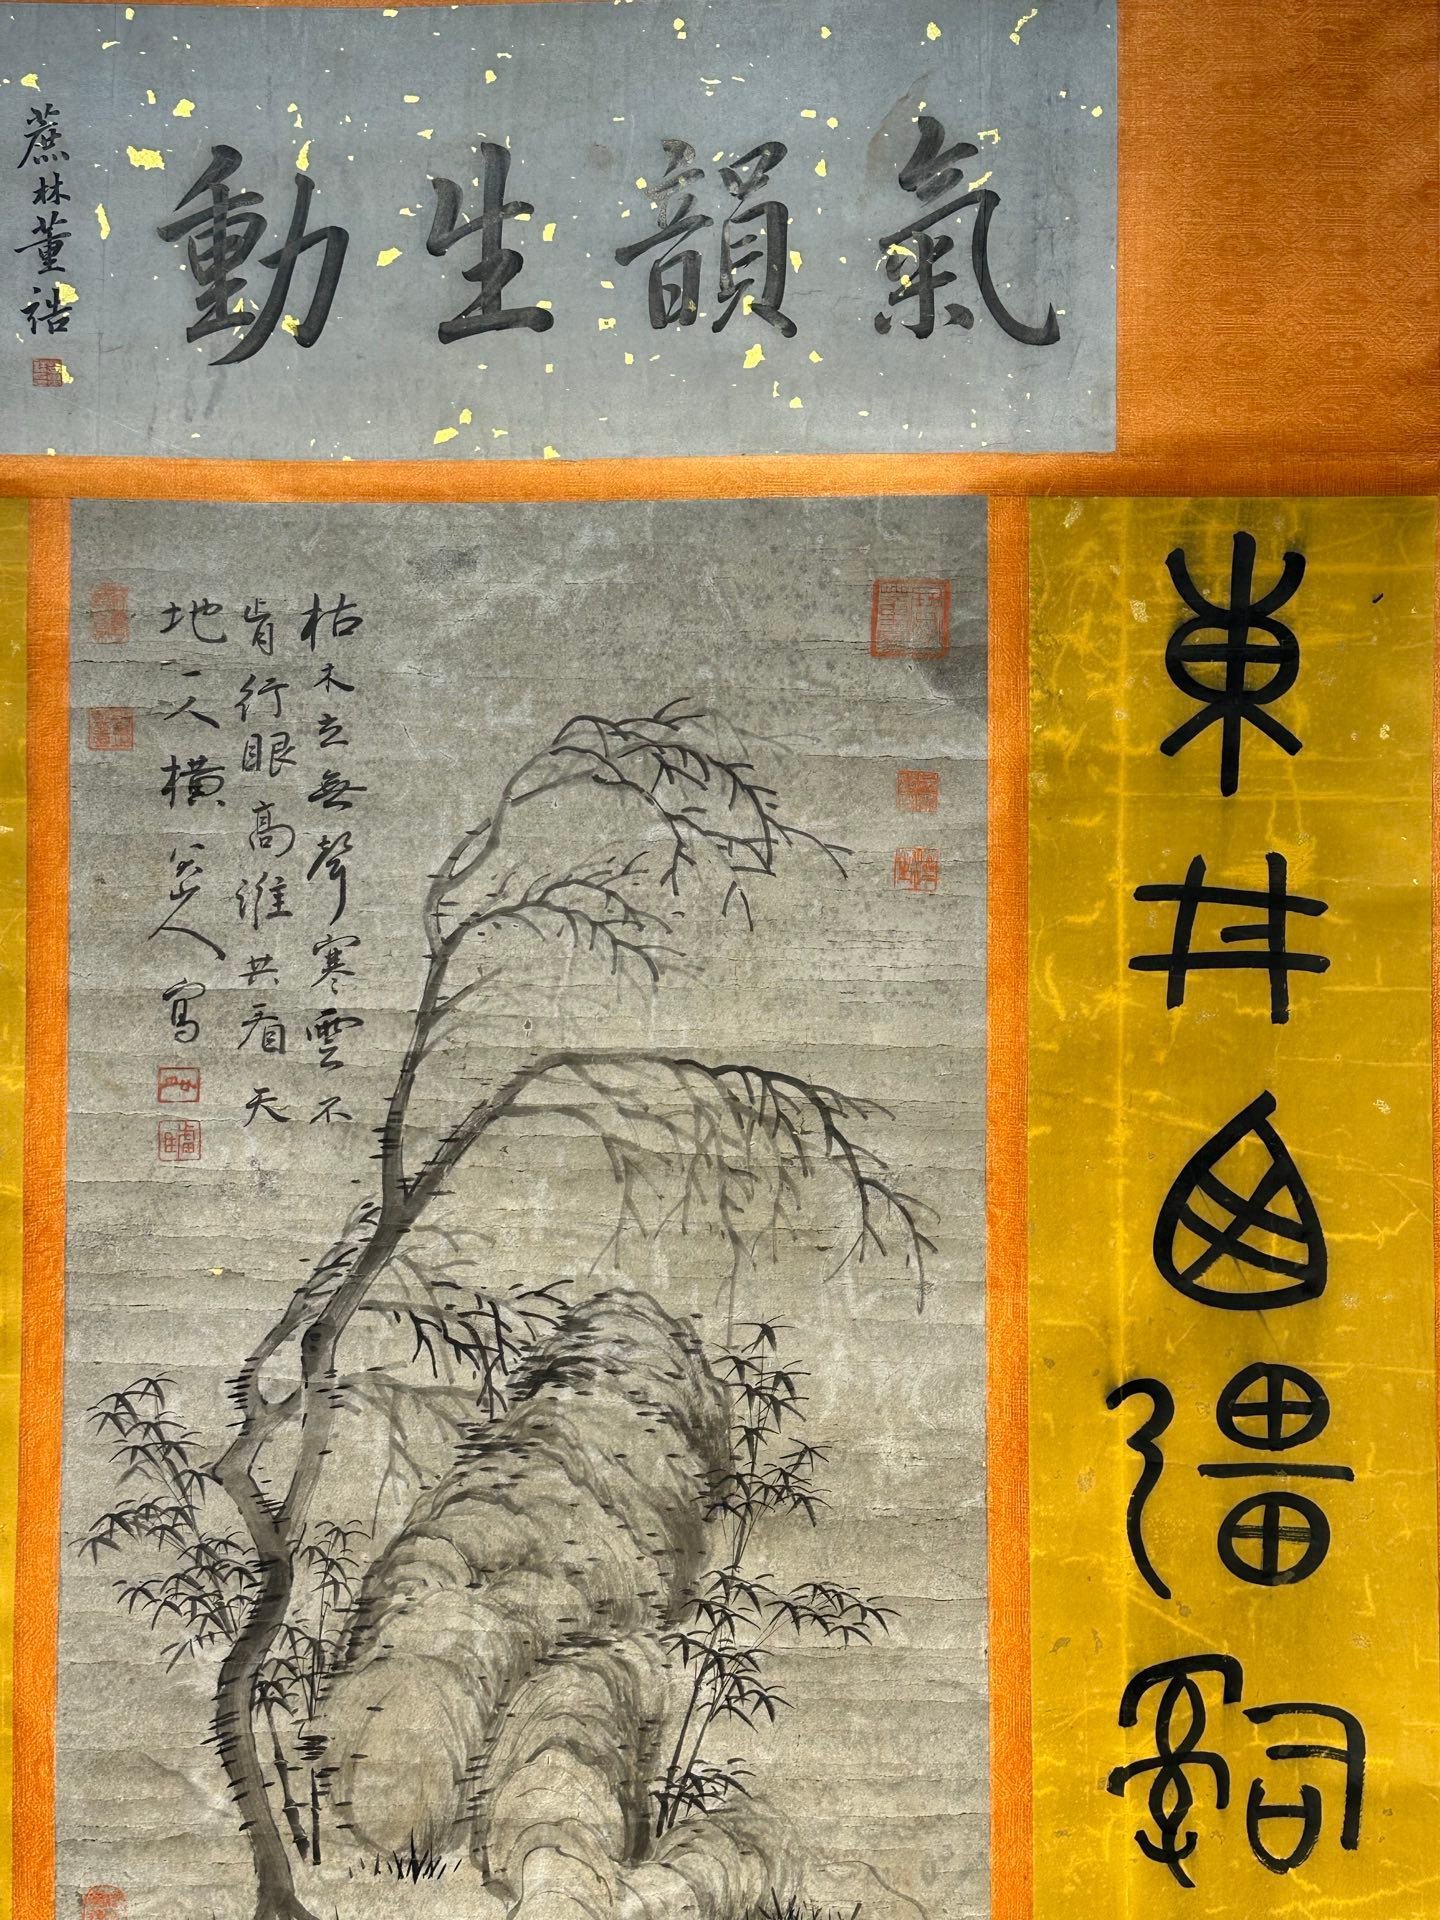 氣韻生動
蔗林董誥
枯木立無聲寒雲不
肯行眼高誰共看天
地一人橫 八大山人寫
東井
彊